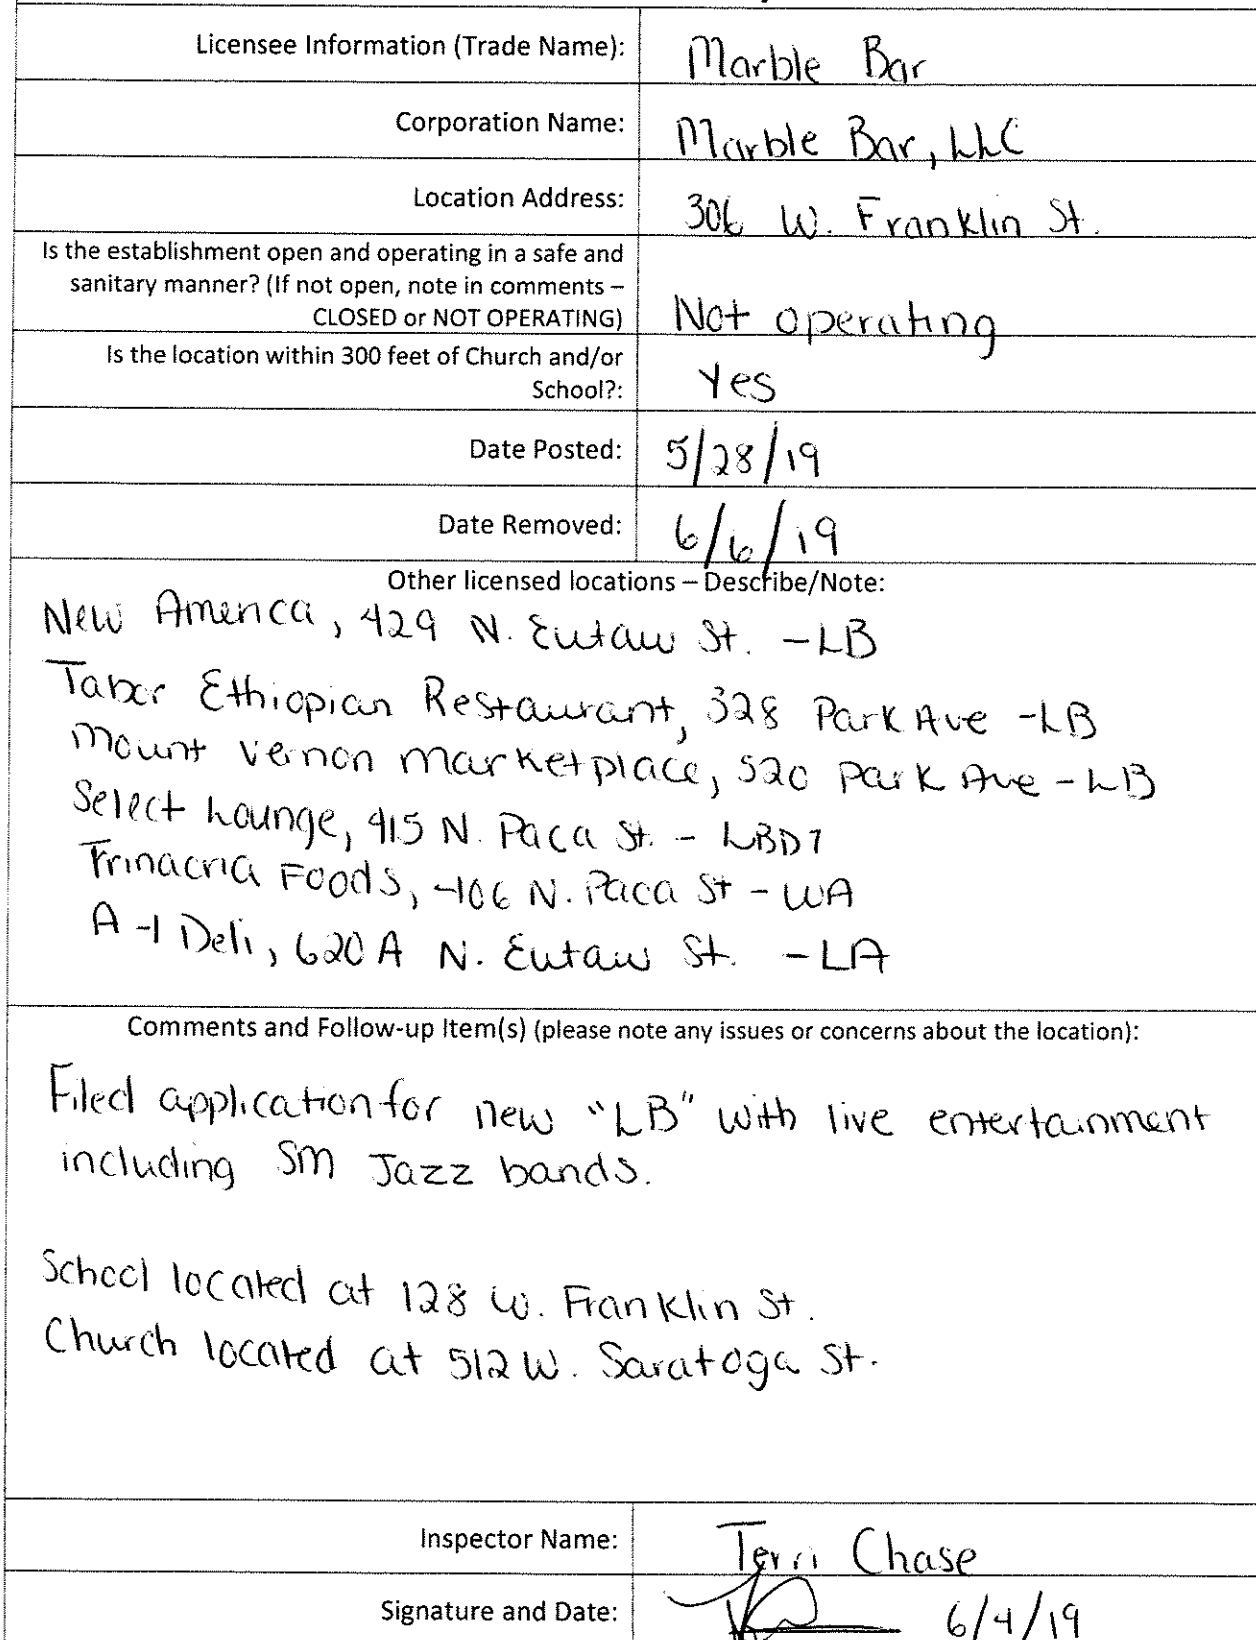 Licensee Information (Trade Name): Marble Bar
Corporation Name: Marble Bar, LLC
Location Address: 306 W. Franklin St.
Is the establishment open and operating in a safe and
sanitary manner? (If not open, note in comments –
CLOSED or NOT OPERATING) Not operating
Is the location within 300 feet of Church and/or
School?: Yes
Date Posted: 5/28/19
Date Removed: 6/6/19
Other licensed locations – Describe/Note:
New America, 429 N. Eutaw St. - LB
Tabor Ethiopian Restaurant, 328 Park Ave - LB
Mount Vernon Marketplace, 520 Park Ave - LB
Select Lounge, 415 N. Paca St. - LBD7
Trinacria Foods, 406 N. Paca St - WA
A-1 Deli, 620 A N. Eutaw St. - LA
Comments and Follow-up Item(s) (please note any issues or concerns about the location):
Filed application for new "LB" with live entertainment
including SM Jazz bands.
School located at 128 W. Franklin St.
Church located at 512 W. Saratoga St.
Inspector Name: Terri Chase
Signature and Date: 6/4/19